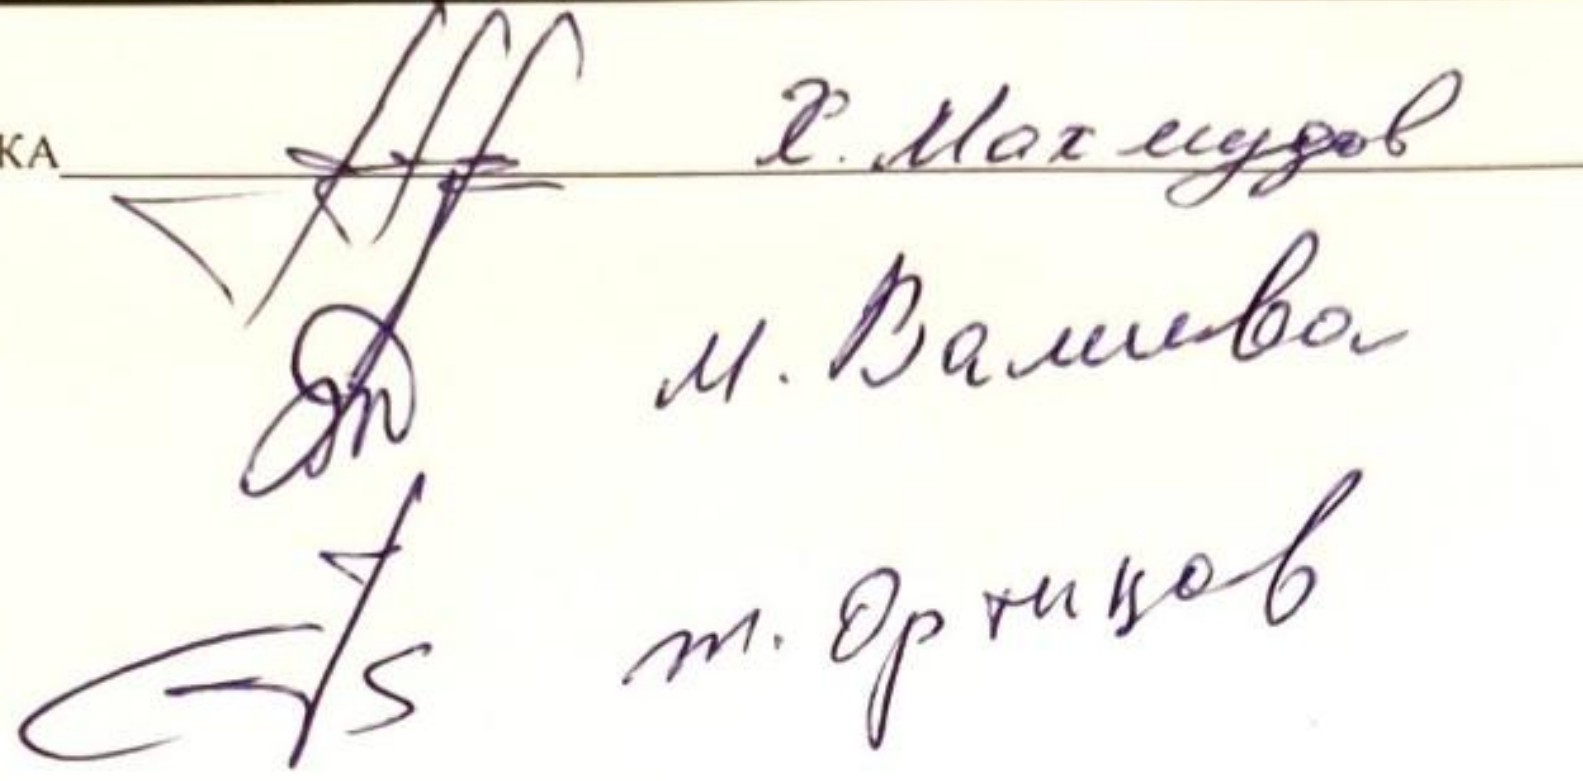 КА Х. Махмудов
М. Валиева
т. Ортиқов